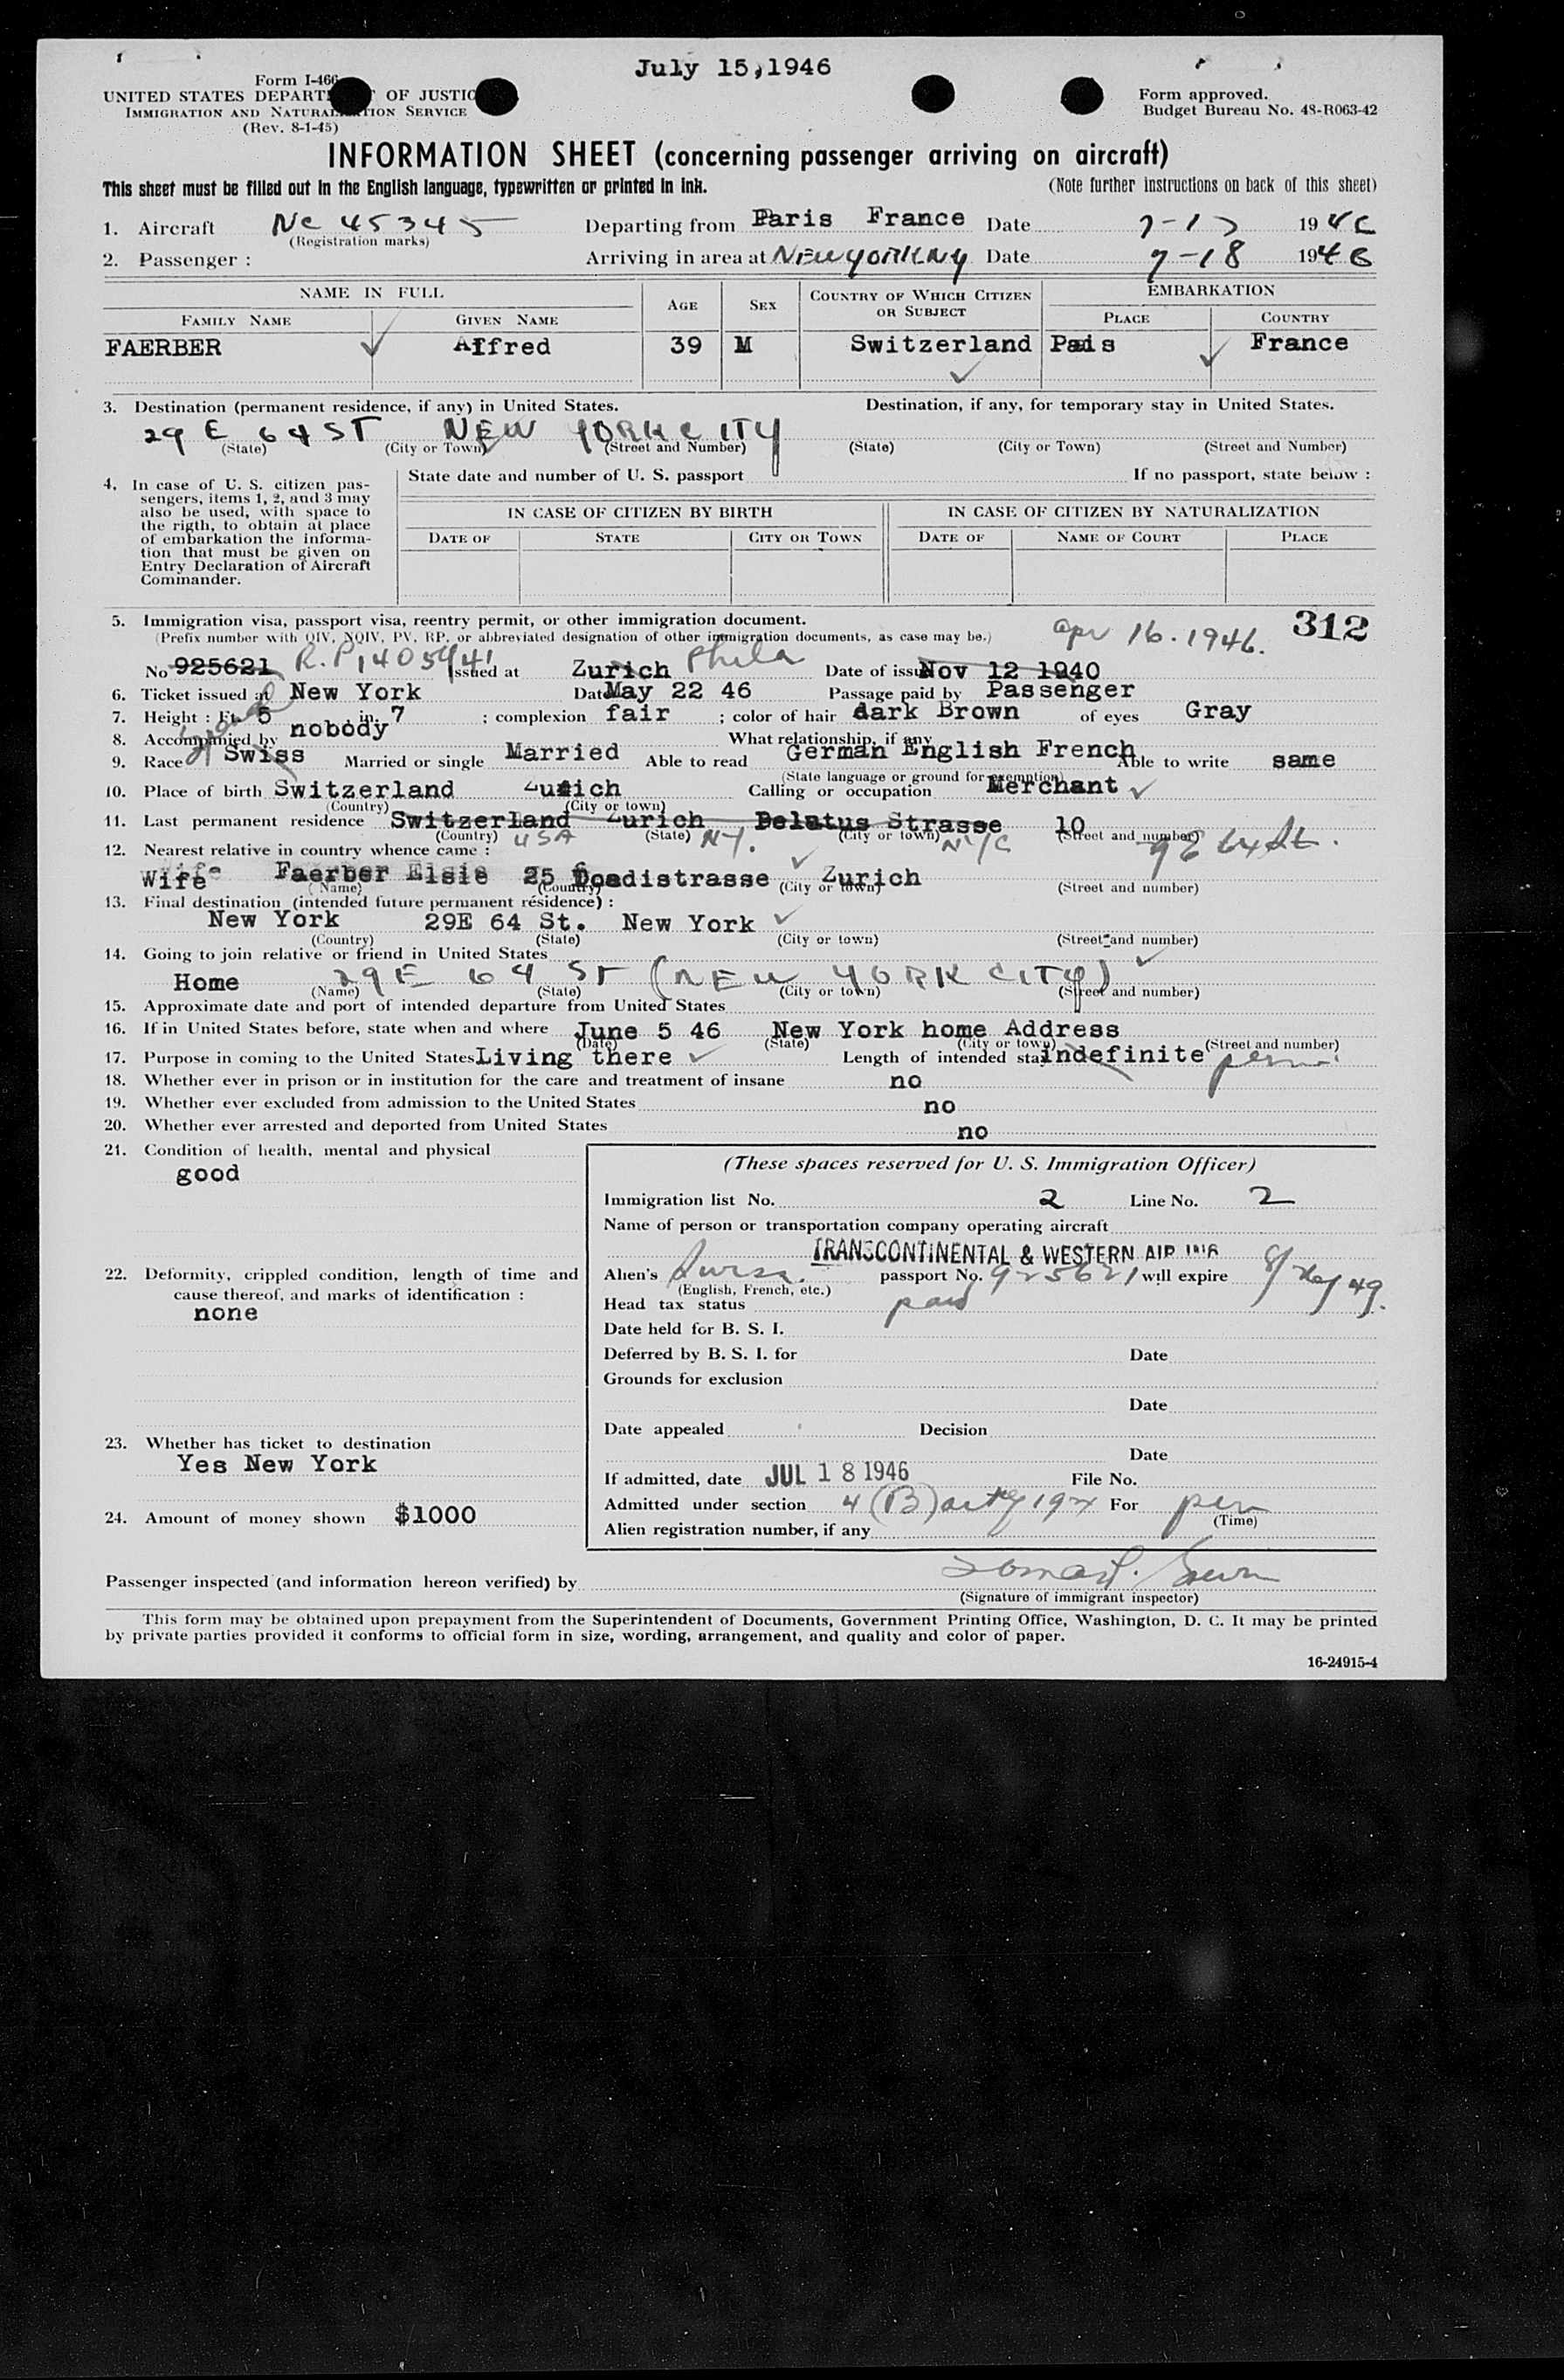 July 15,1946
Form I-466
UNITED STATES DEPART OF JUSTIC
IMMIGRATION AND NATURALIZATION SERVICE
(Rev. 8-1-45)
Form approved.
Budget Bureau No. 48-R063-42
INFORMATION SHEET (concerning passenger arriving on aircraft)
This sheet must be filled out in the English language, typewritten or printed in ink. (Note further instructions on back of this sheet)
1. Aircraft NC 45345 Departing from Paris France Date 7-17 1946
(Registration marks)
2. Passenger : Arriving in area at NEW YORK NY Date 7-18 1946
NAME IN FULL AGE SEX COUNTRY OF WHICH CITIZEN OR SUBJECT EMBARKATION
FAMILY NAME GIVEN NAME PLACE COUNTRY
FAERBER Alfred 39 M Switzerland Pais France
3. Destination (permanent residence, if any) in United States. Destination, if any, for temporary stay in United States.
29 E 64 ST NEW YORK CITY
(State) (City or Town) (Street and Number) (State) (City or Town) (Street and Number)
4. In case of U. S. citizen passengers, items 1, 2, and 3 may also be used, with space to the rigth, to obtain at place of embarkation the information that must be given on Entry Declaration of Aircraft Commander.
State date and number of U. S. passport If no passport, state below :
IN CASE OF CITIZEN BY BIRTH IN CASE OF CITIZEN BY NATURALIZATION
DATE OF STATE CITY OR TOWN DATE OF NAME OF COURT PLACE
5. Immigration visa, passport visa, reentry permit, or other immigration document. 312
(Prefix number with QIV, NQIV, PV, RP, or abbreviated designation of other immigration documents, as case may be.) Apr 16. 1946.
No 925621 R.P. 1405441 Issued at Zurich Phila Date of issu Nov 12 1940
6. Ticket issued at New York Date May 22 46 Passage paid by Passenger
7. Height : Ft. 5 in. 7 ; complexion fair ; color of hair dark Brown of eyes Gray
8. Accompanied by nobody What relationship, if any
9. Race Swiss Married or single Married Able to read German English French Able to write same
(State language or ground for exemption)
10. Place of birth Switzerland Zurich Calling or occupation Merchant
(Country) (City or town)
11. Last permanent residence Switzerland Zurich Pelatus Strasse 10
(Country) USA (State) N.Y. (City or town) NYC (Street and number) 9 E 64 St.
12. Nearest relative in country whence came :
Wife Faerber Elsie 25 Zurich
(Name) (Country) (City or town) (Street and number)
13. Final destination (intended future permanent residence) :
New York 29E 64 St. New York
(Country) (State) (City or town) (Street and number)
14. Going to join relative or friend in United States
Home 29 E 64 ST (NEW YORK CITY)
(Name) (State) (City or town) (Street and number)
15. Approximate date and port of intended departure from United States
16. If in United States before, state when and where June 5 46 New York home Address
(Date) (State) (City or town) (Street and number)
17. Purpose in coming to the United States Living there Length of intended sta indefinite perm.
18. Whether ever in prison or in institution for the care and treatment of insane no
19. Whether ever excluded from admission to the United States no
20. Whether ever arrested and deported from United States no
21. Condition of health, mental and physical
good
22. Deformity, crippled condition, length of time and cause thereof, and marks of identification :
none
23. Whether has ticket to destination
Yes New York
24. Amount of money shown $1000
(These spaces reserved for U. S. Immigration Officer)
Immigration list No. 2 Line No. 2
Name of person or transportation company operating aircraft
TRANSCONTINENTAL & WESTERN AIR INC
Alien's Swiss. passport No. 925621 will expire 8/May 49.
(English, French, etc.)
Head tax status paid
Date held for B. S. I.
Deferred by B. S. I. for Date
Grounds for exclusion
Date
Date appealed Decision
Date
If admitted, date JUL 18 1946 File No.
Admitted under section 4 (B) For per
(Time)
Alien registration number, if any
Passenger inspected (and information hereon verified) by
(Signature of immigrant inspector)
This form may be obtained upon prepayment from the Superintendent of Documents, Government Printing Office, Washington, D. C. It may be printed
by private parties provided it conforms to official form in size, wording, arrangement, and quality and color of paper.
16-24915-4